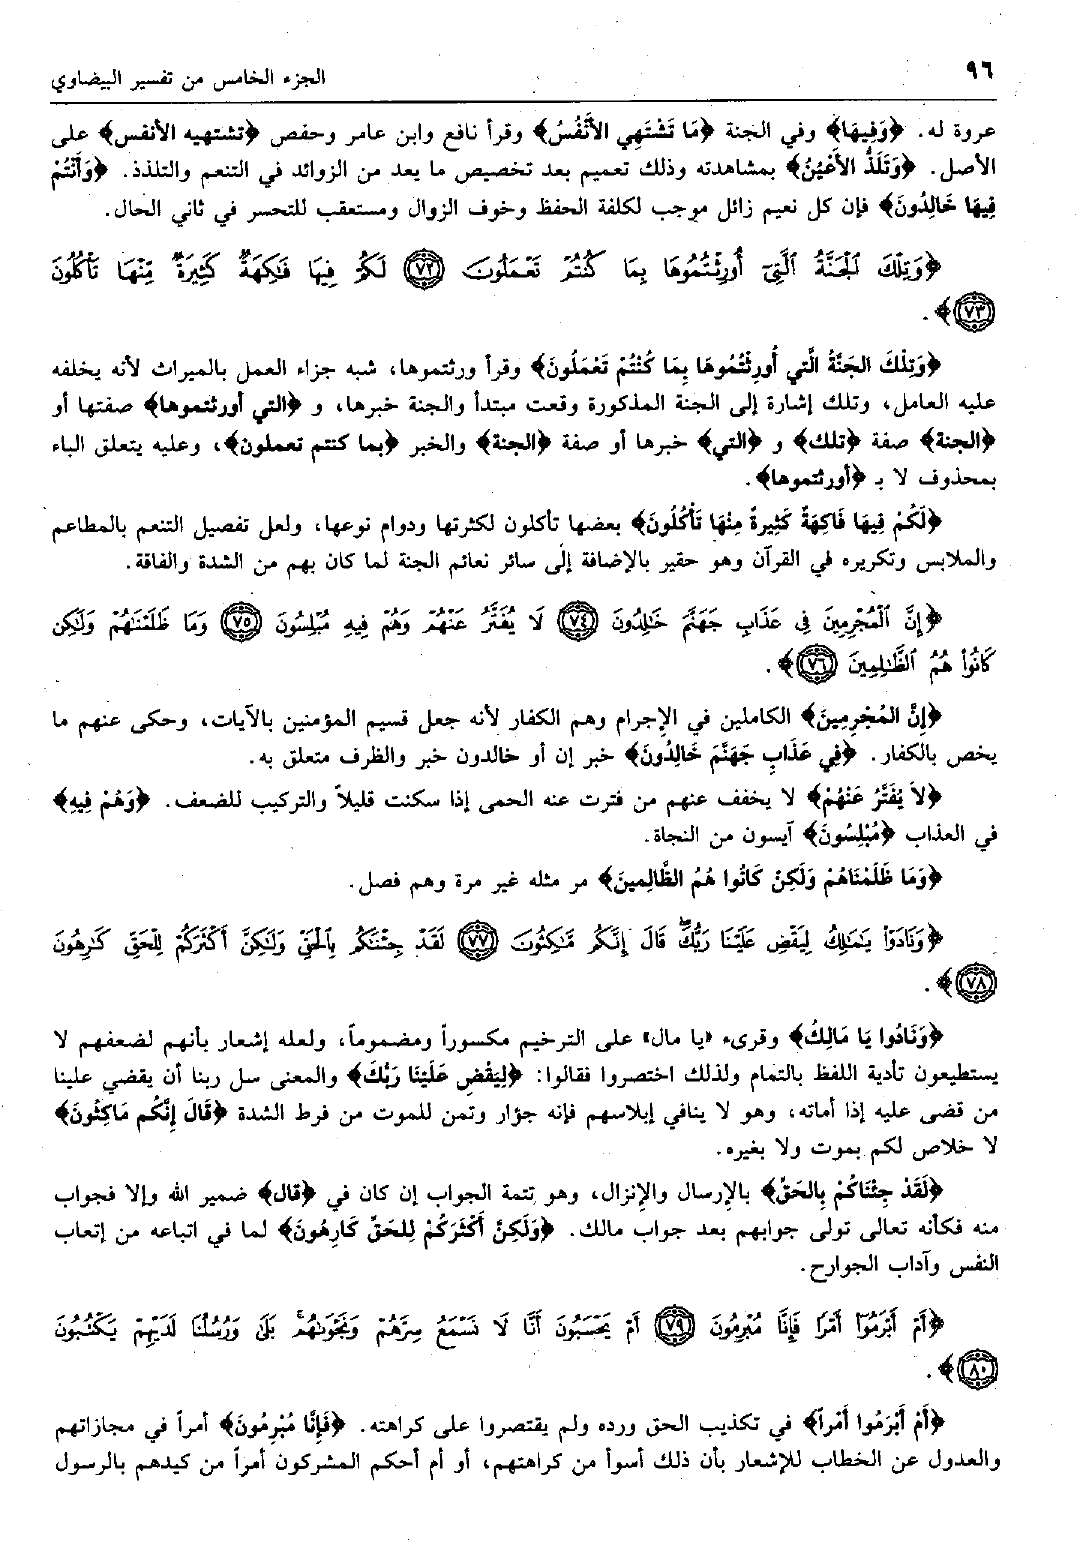 ٩٦
الجزء الخامس من تفسير البيضاوي
عروة له. ﴿وَفِيهَا﴾ وفي الجنة ﴿مَا تَشْتَهِي الأَنْفُسُ﴾ وقرأ نافع وابن عامر وحفص ﴿تشتهيه الأنفس﴾ على
الأصل. ﴿وَتَلَذُّ الأَعْيُنُ﴾ بمشاهدته وذلك تعميم بعد تخصيص ما يعد من الزوائد في التنعم والتلذذ. ﴿وَأَنْتُمْ
فِيهَا خَالِدُونَ﴾ فإن كل نعيم زائل موجب لكلفة الحفظ وخوف الزوال ومستعقب للتحسر في ثاني الحال.
﴿وَتِلْكَ ٱلْجَنَّةُ ٱلَّتِىٓ أُورِثْتُمُوهَا بِمَا كُنتُمْ تَعْمَلُونَ ٧٢ لَكُمْ فِيهَا فَـٰكِهَةٌ كَثِيرَةٌ مِّنْهَا تَأْكُلُونَ
٧٣﴾.
﴿وَتِلْكَ الجَنَّةُ الَّتي أُورِثْتُمُوهَا بِمَا كُنْتُمْ تَعْمَلُونَ﴾ وقرأ ورثتموها، شبه جزاء العمل بالميراث لأنه يخلفه
عليه العامل، وتلك إشارة إلى الجنة المذكورة وقعت مبتدأ والجنة خبرها، و ﴿التي أورثتموها﴾ صفتها أو
﴿الجنة﴾ صفة ﴿تلك﴾ و ﴿التي﴾ خبرها أو صفة ﴿الجنة﴾ والخبر ﴿بما كنتم تعملون﴾، وعليه يتعلق الباء
بمحذوف لا بـ ﴿أورثتموها﴾.
﴿لَكُمْ فِيهَا فَاكِهَةٌ كَثِيرَةٌ مِنْهَا تَأْكُلُونَ﴾ بعضها تأكلون لكثرتها ودوام نوعها، ولعل تفصيل التنعم بالمطاعم
والملابس وتكريره في القرآن وهو حقير بالإضافة إلى سائر نعائم الجنة لما كان بهم من الشدة والفاقة.
﴿إِنَّ ٱلْمُجْرِمِينَ فِى عَذَابِ جَهَنَّمَ خَـٰلِدُونَ ٧٤ لَا يُفَتَّرُ عَنْهُمْ وَهُمْ فِيهِ مُبْلِسُونَ ٧٥ وَمَا ظَلَمْنَـٰهُمْ وَلَـٰكِن
كَانُوا۟ هُمُ ٱلظَّـٰلِمِينَ ٧٦﴾.
﴿إِنَّ المُجْرِمِينَ﴾ الكاملين في الإجرام وهم الكفار لأنه جعل قسيم المؤمنين بالآيات، وحكى عنهم ما
يخص بالكفار. ﴿فِي عَذَابِ جَهَنَّمَ خَالِدُونَ﴾ خبر إن أو خالدون خبر والظرف متعلق به.
﴿لاَ يُفَتَّرُ عَنْهُمْ﴾ لا يخفف عنهم من فترت عنه الحمى إذا سكنت قليلاً والتركيب للضعف. ﴿وَهُمْ فِيهِ﴾
في العذاب ﴿مُبْلِسُونَ﴾ آيسون من النجاة.
﴿وَمَا ظَلَمْنَاهُمْ وَلَكِنْ كَانُوا هُمُ الظَّالِمِينَ﴾ مر مثله غير مرة وهم فصل.
﴿وَنَادَوْا۟ يَـٰمَـٰلِكُ لِيَقْضِ عَلَيْنَا رَبُّكَ ۖ قَالَ إِنَّكُم مَّـٰكِثُونَ ٧٧ لَقَدْ جِئْنَـٰكُم بِٱلْحَقِّ وَلَـٰكِنَّ أَكْثَرَكُمْ لِلْحَقِّ كَـٰرِهُونَ
٧٨﴾.
﴿وَنَادُوا يَا مَالِكُ﴾ وقرىء «يا مال» على الترخيم مكسوراً ومضموماً، ولعله إشعار بأنهم لضعفهم لا
يستطيعون تأدية اللفظ بالتمام ولذلك اختصروا فقالوا: ﴿لِيَقْضِ عَلَيْنَا رَبُّكَ﴾ والمعنى سل ربنا أن يقضي علينا
من قضى عليه إذا أماته، وهو لا ينافي إبلاسهم فإنه جؤار وتمن للموت من فرط الشدة ﴿قَالَ إِنَّكُم مَاكِثُونَ﴾
لا خلاص لكم بموت ولا بغيره.
﴿لَقَدْ جِئْنَاكُمْ بِالحَقِّ﴾ بالإرسال والإنزال، وهو تتمة الجواب إن كان في ﴿قال﴾ ضمير الله وإلا فجواب
منه فكأنه تعالى تولى جوابهم بعد جواب مالك. ﴿وَلَكِنَّ أَكْثَرَكُمْ لِلحَقِّ كَارِهُونَ﴾ لما في اتباعه من إتعاب
النفس وآداب الجوارح.
﴿أَمْ أَبْرَمُوٓا۟ أَمْرًا فَإِنَّا مُبْرِمُونَ ٧٩ أَمْ يَحْسَبُونَ أَنَّا لَا نَسْمَعُ سِرَّهُمْ وَنَجْوَىٰهُم ۚ بَلَىٰ وَرُسُلُنَا لَدَيْهِمْ يَكْتُبُونَ
٨٠﴾.
﴿أَمْ أَبْرَمُوا أَمْراً﴾ في تكذيب الحق ورده ولم يقتصروا على كراهته. ﴿فَإِنَّا مُبْرِمُونَ﴾ أمراً في مجازاتهم
والعدول عن الخطاب للإشعار بأن ذلك أسوأ من كراهتهم، أو أم أحكم المشركون أمراً من كيدهم بالرسول